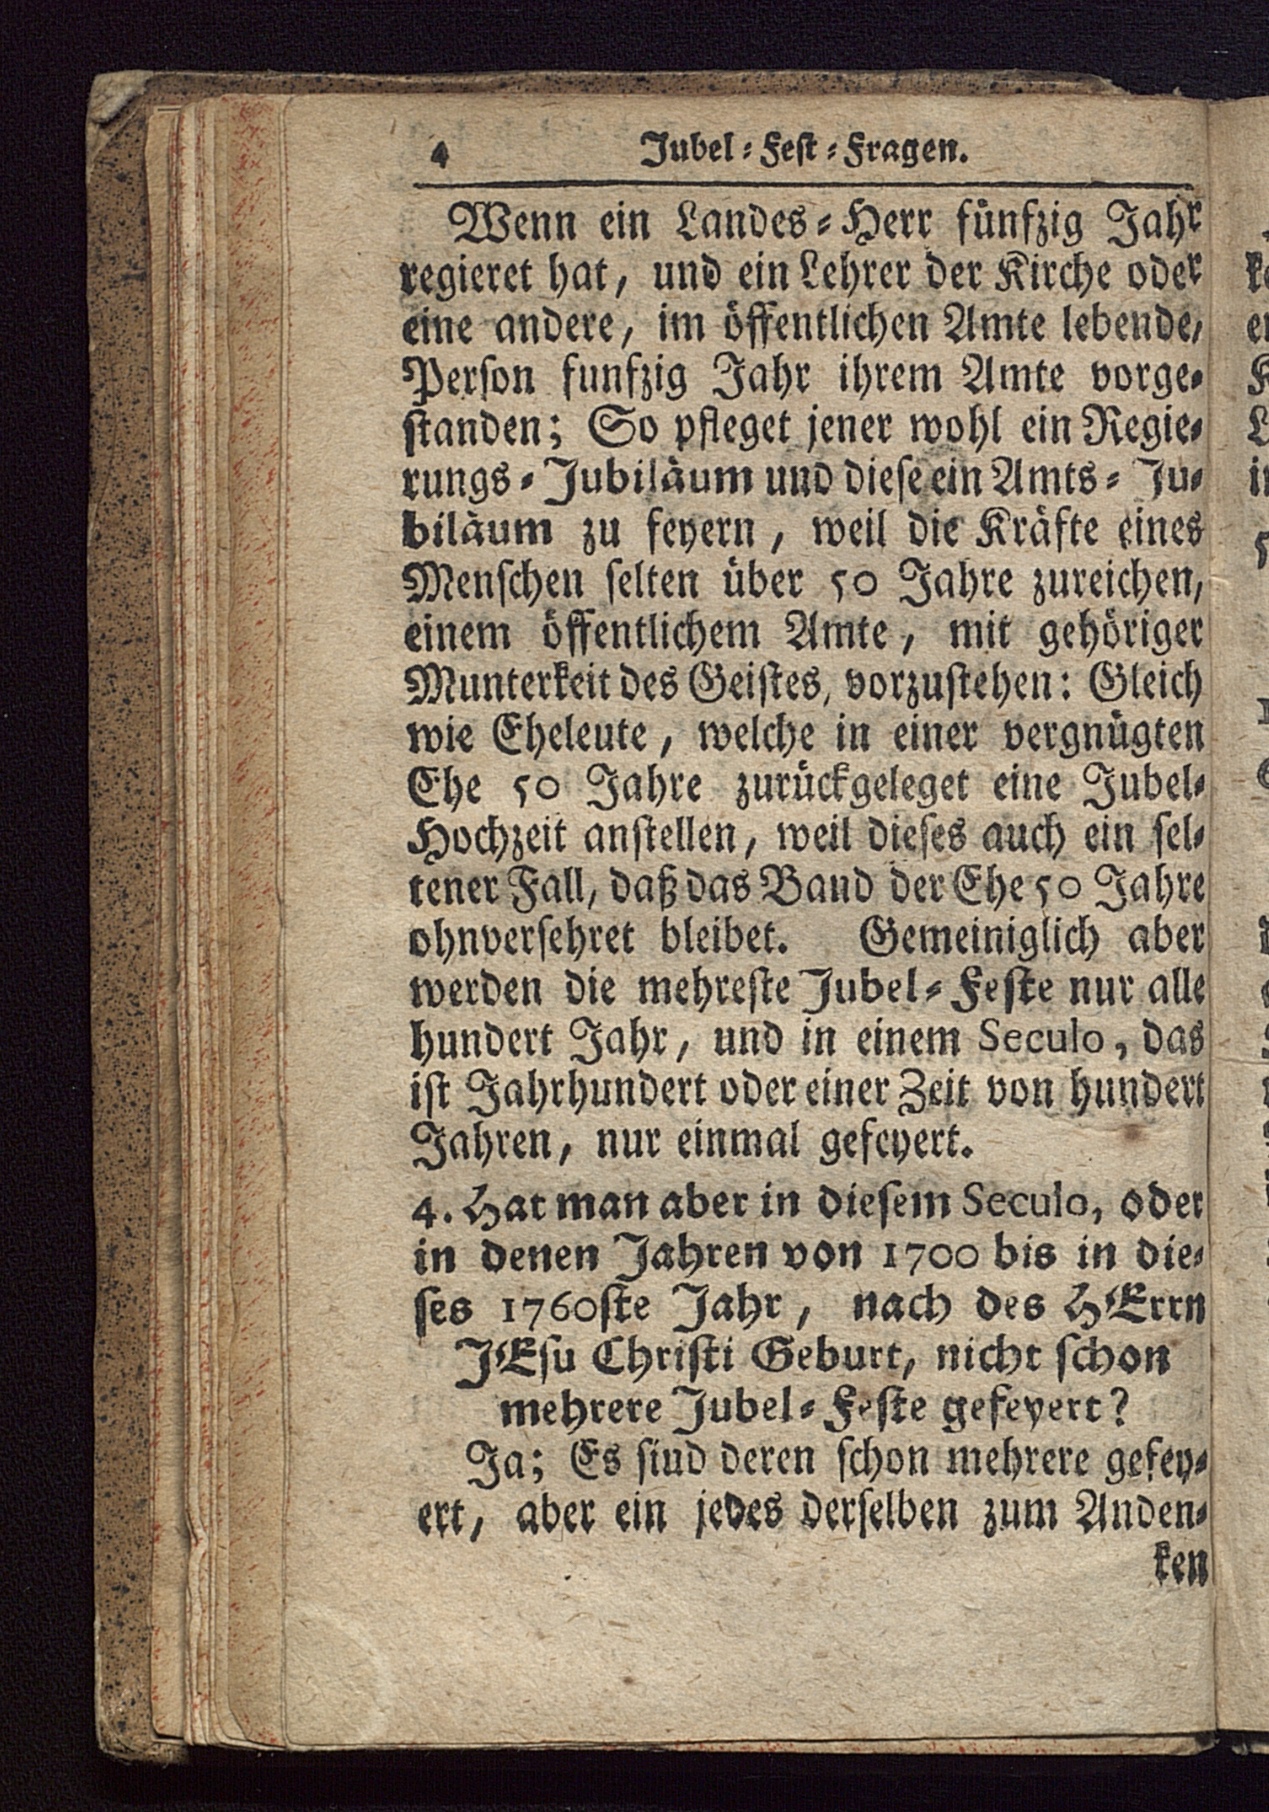 4 Jubel-Fest-Fragen.
Wenn ein Landes-Herr fünfzig Jahr
regieret hat, und ein Lehrer der Kirche oder
eine andere, im öffentlichen Amte lebende,
Person funfzig Jahr ihrem Amte vorge-
standen; So pfleget jener wohl ein Regie-
rungs-Jubiläum und diese ein Amts-Ju-
biläum zu feyern, weil die Kräfte eines
Menschen selten über 50 Jahre zureichen,
einem öffentlichem Amte, mit gehöriger
Munterkeit des Geistes, vorzustehen: Gleich
wie Eheleute, welche in einer vergnügten
Ehe 50 Jahre zurückgeleget eine Jubel-
Hochzeit anstellen, weil dieses auch ein sel-
tener Fall, daß das Band der Ehe 50 Jahre
ohnversehret bleibet. Gemeiniglich aber
werden die mehreste Jubel-Feste nur alle
hundert Jahr, und in einem Seculo, das
ist Jahrhundert oder einer Zeit von hundert
Jahren, nur einmal gefeyert.
4. Hat man aber in diesem Seculo, oder
in denen Jahren von 1700 bis in die-
ses 1760ste Jahr, nach des HErrn
JEsu Christi Geburt, nicht schon
mehrere Jubel-Feste gefeyert?
Ja; Es sind deren schon mehrere gefey-
ert, aber ein jedes derselben zum Anden-
ken